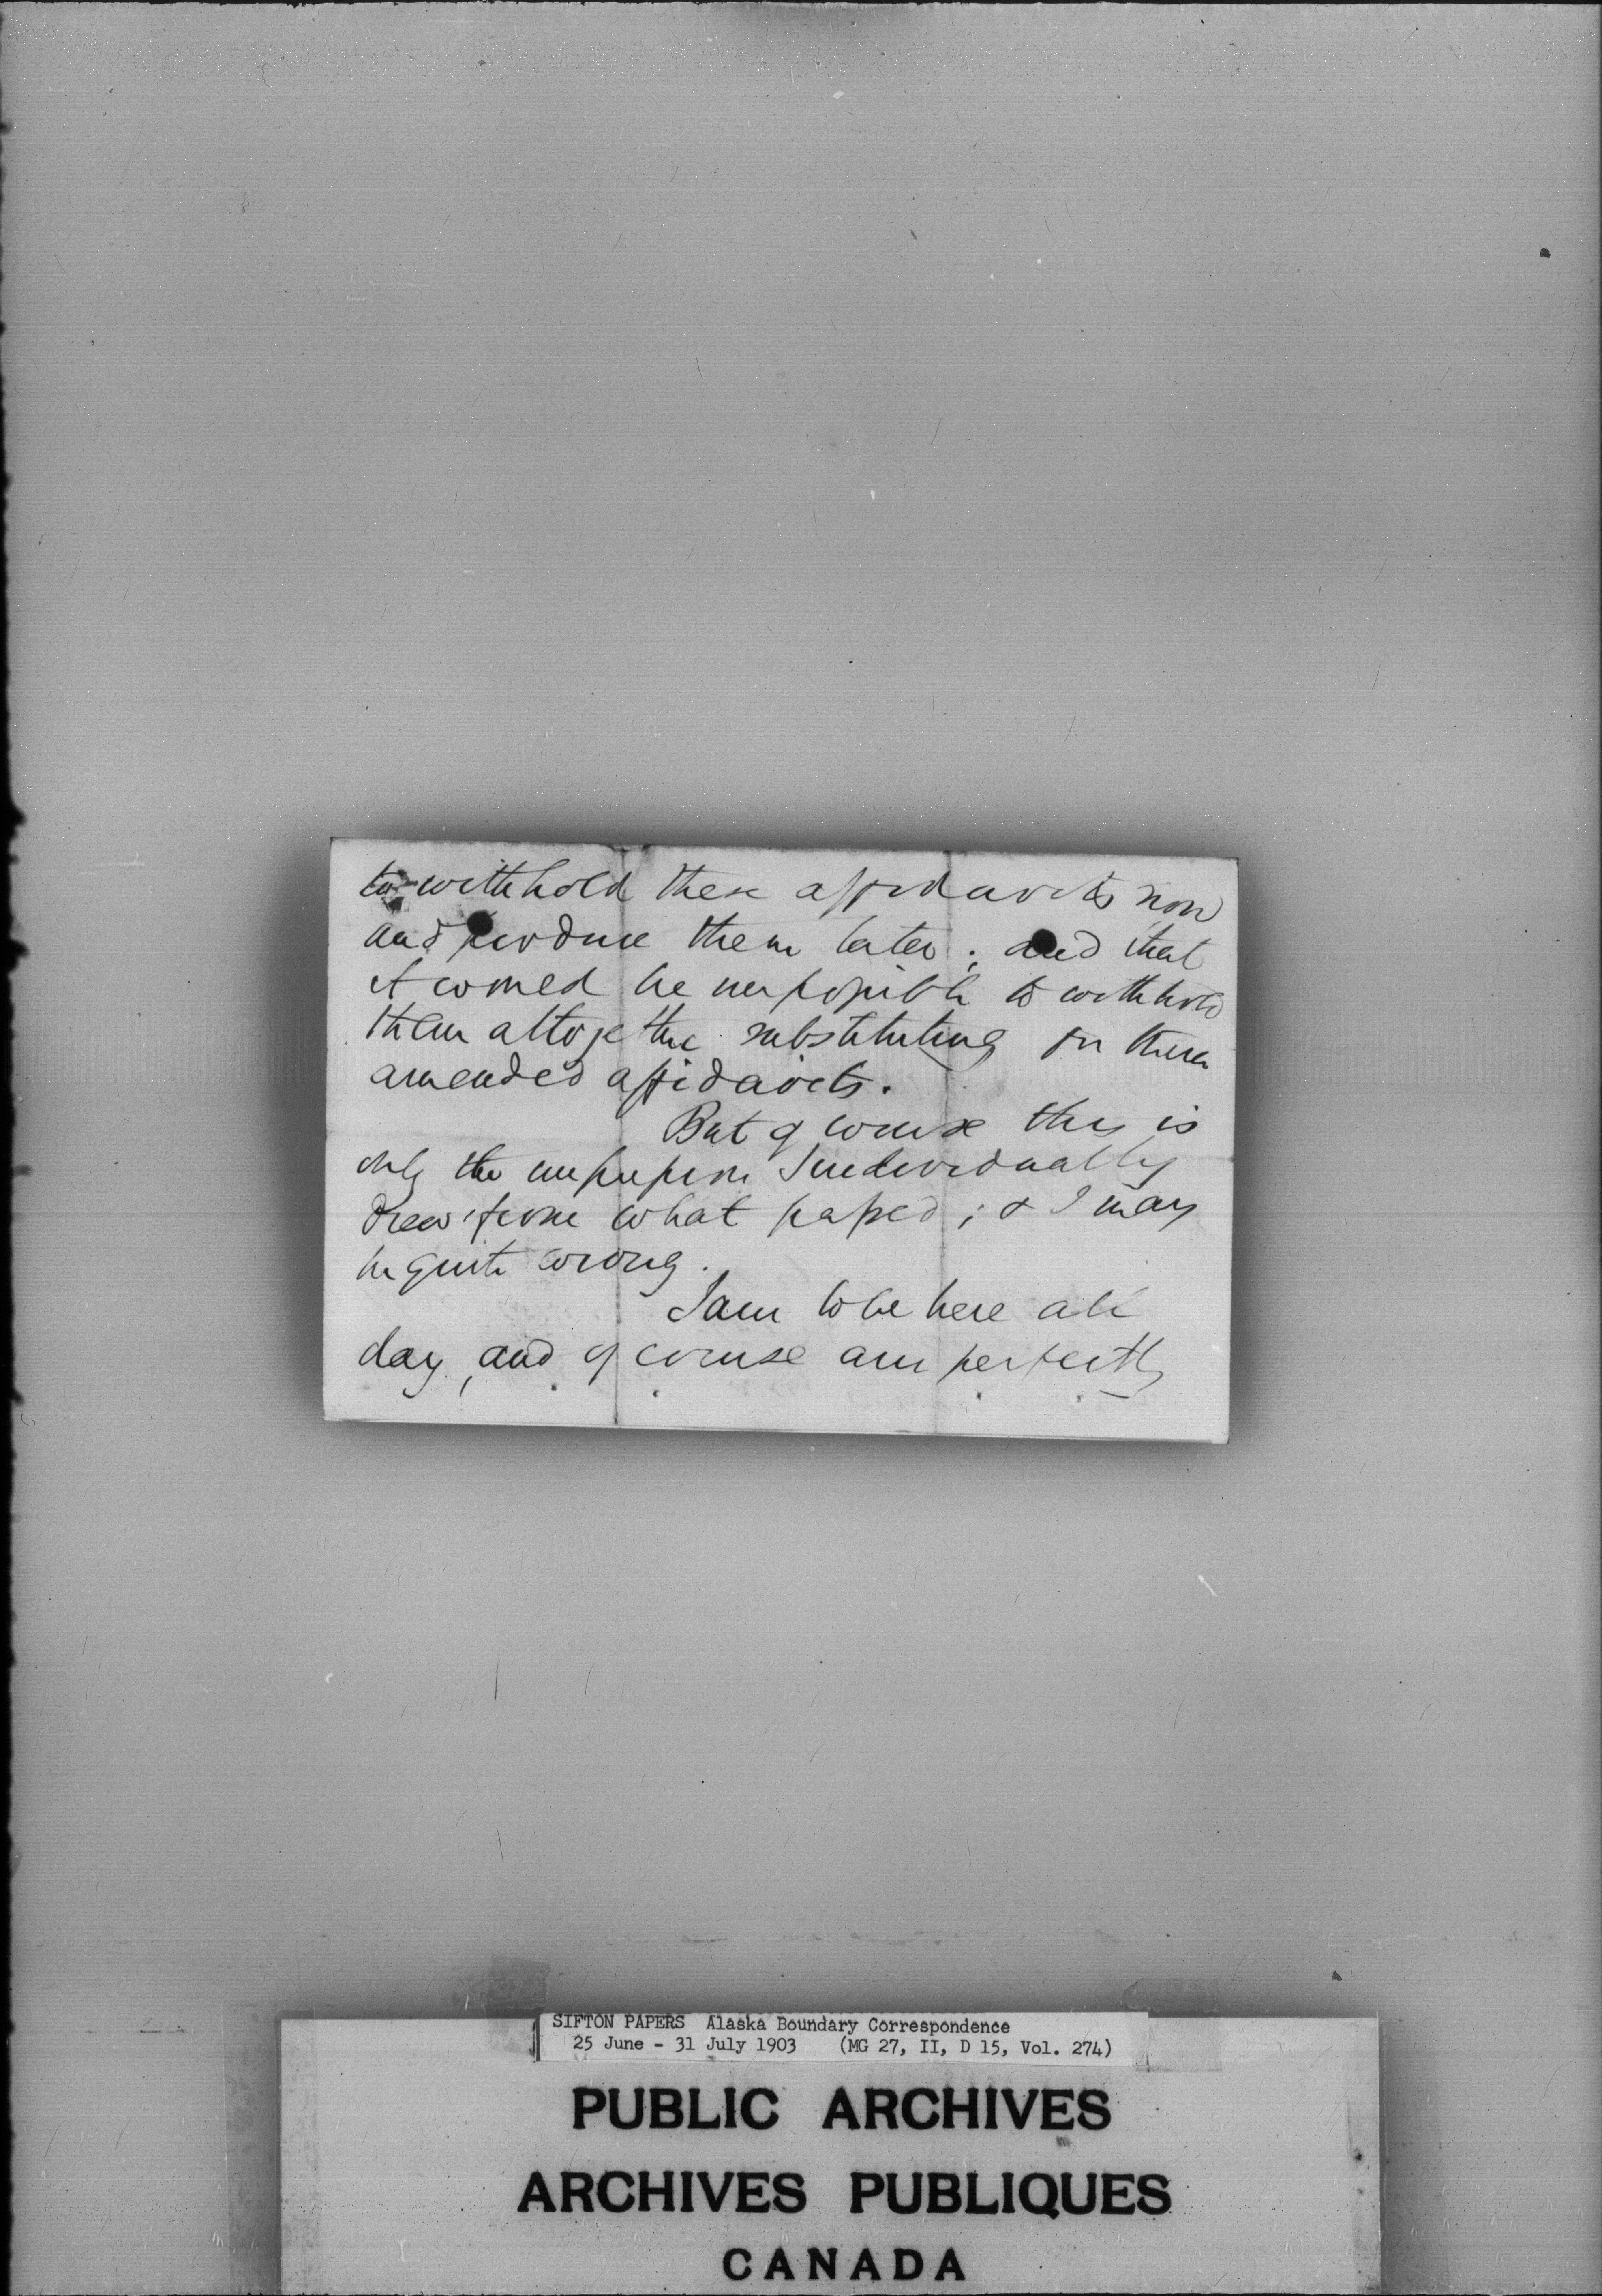 to withhold these affidavits now
and produce them later; and that
it would be impossible to withhold
them altogether substituting for them
amended affidavits.
But of course this is
only the impression I individually
drew from what passed; & I may
be quite wrong.
I am to be here all
day, and of course am perfectly
SIFTON PAPERS Alaska Boundary Correspondence
25 June - 31 July 1903 (MG 27, II, D 15, Vol. 274)
PUBLIC ARCHIVES
ARCHIVES PUBLIQUES
CANADA